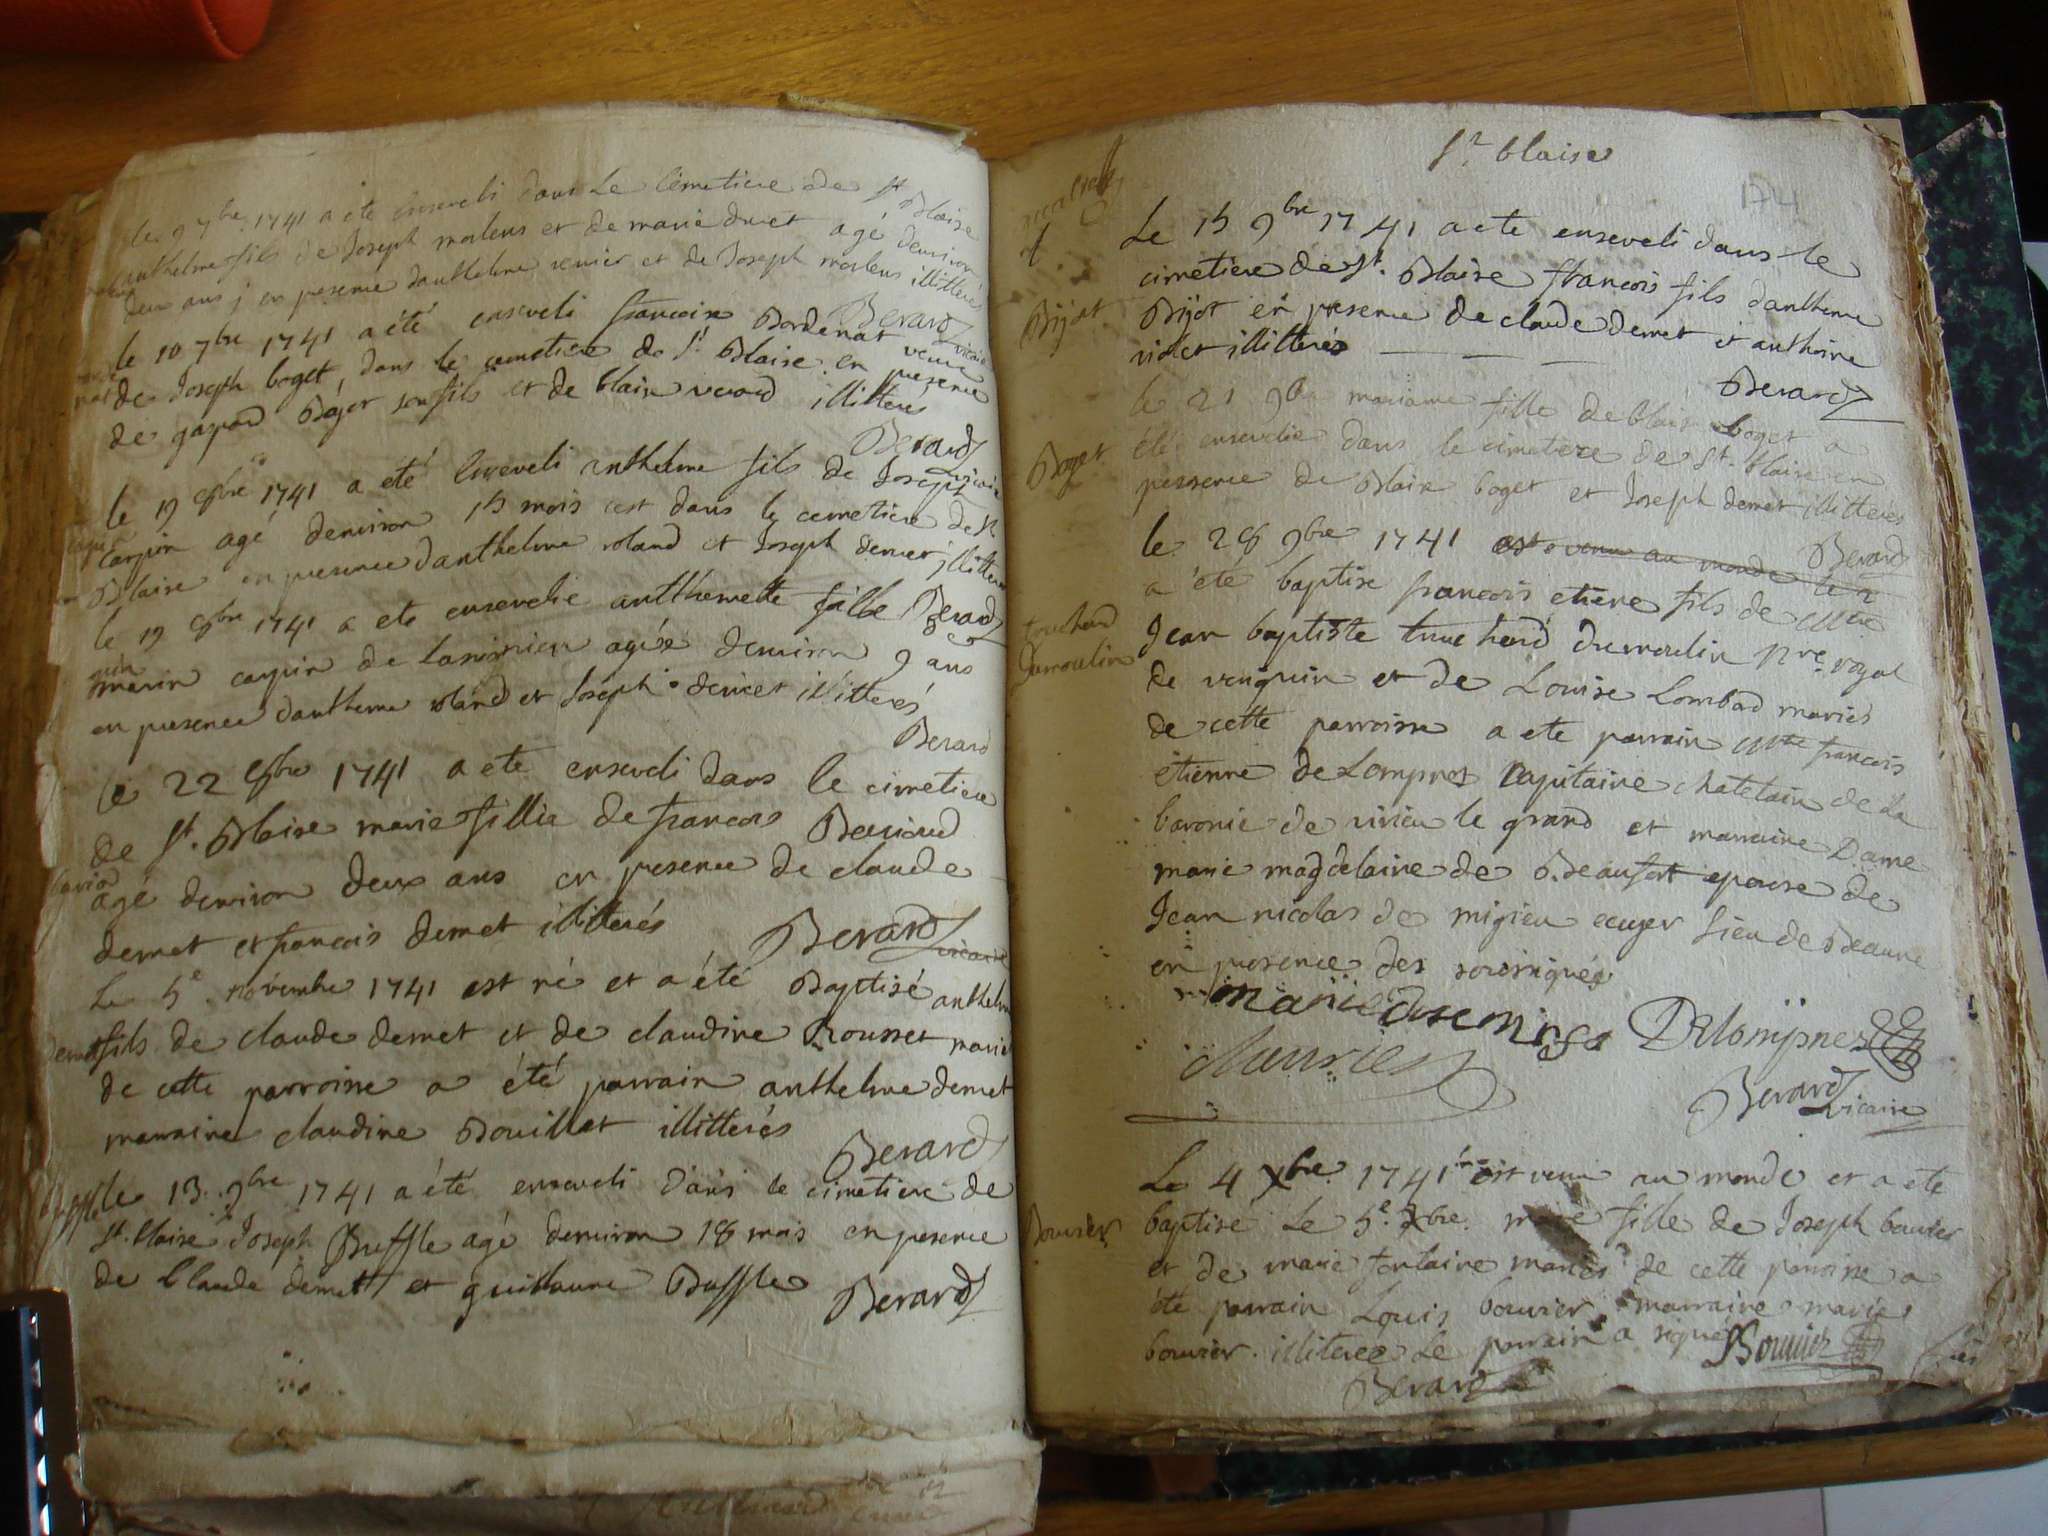 le 9 7bre 1741 a ete enseveli dans le cemetiere de St Blaise
anthelme fils de Joseph morlens et de marie druet agé denviron
deux ans j en presence danthelme et de Joseph morlens illitteré
Berard vicaire
le 10 7bre 1741 a été enseveli francoise Bordenat veuve
de Joseph boget, dans le cemetiere de St Blaise en presence
de gaspard Boget son fils et de blaise illitterés
Berard vicaire
le 19 8bre 1741 a été enseveli anthelme fils de Joseph
carpin agé denviron 15 mois cest dans le cemetiere de St
Blaise en presence danthelme roland et Joseph illitterés
Berard
le 19 8bre 1741 a ete ensevelie anthemette fille de
marin carpin de agée denviron 9 ans
en presence dantheme roland et Joseph illitterés
Berard
le 22 8bre 1741 a ete enseveli dans le cimetiere
de St. Blaise marie fillie de francois Bavioud
agé denviron deux ans en presence de claude
demet et francois demet illitterés
Berard vicaire
Le 5e novembre 1741 est né et a été Baptisé anthelme
demet
fils de claude demet et de claudine Rousset mariés
de cette parroisse a été parrain anthelme demet
marraine claudine Bouillet illitterés
Berard
Buffle
le 13 9bre 1741 a été enseveli dans le cimetiere de
St. blaise Joseph Buffle agé denviron 18 mois en presence
de Claude demet et guillaume Buffle
Berard
St blaise
174
Le 15 9bre 1741 a ete enseveli dans le
cimetiere de St. Blaise francois fils danthelme
Bijot
Bijot en presence de claude demet et anthoine
violet illitterés
Berard
le 21 9bre mariane fille de blaise boget a
Boget
été ensevelie dans le cimetiere de St. blaise en
presence de Blaise boget et Joseph demet illitterés
Berard
le 28 9bre 1741 est venu au monde le
a été baptise francois etiene fils de
truchard
Dumoulin
Jean baptiste truchard dumoulin royal
de et de Louise Lombard mariés
de cette parroisse a ete parrain francois
etienne de Lompnes Capitaine chatelain de La
baronie de virieu le grand et marraine Dame
marie magdelaine de Beaufort epouse de
Jean nicolas de migieu ecuyer sieu de Beaune
en presence des soussignés
Delompnes
Berard vicaire
Le 4 Xbre 1741 est venu au monde et a ete
baptisé le 5e. Xbre. marie fille de Joseph bouvier
Bouvier
et de marie fontaine mariés de cette parroisse a
été parrain Louis bouvier marraine marie
bouvier illiteree Le parrain a signé Bouvier
Berard